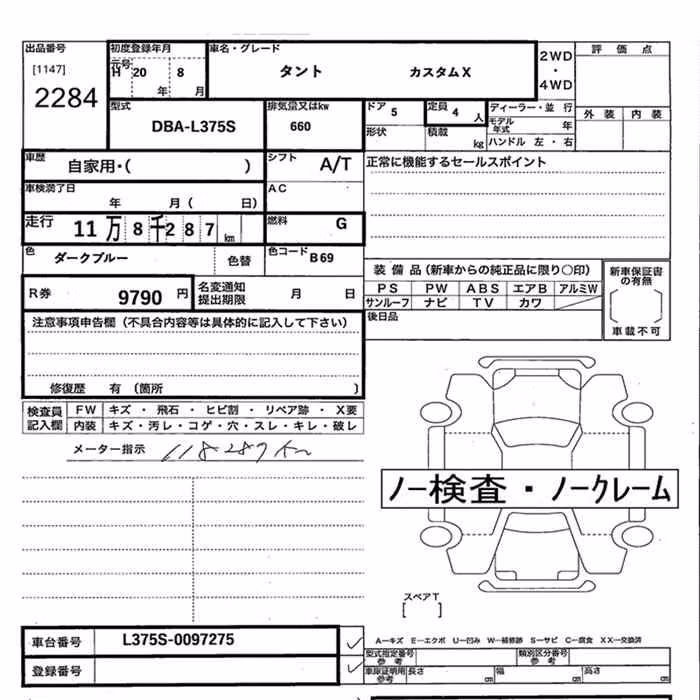 出品番号 初度登録年月 車名・グレード 2WD・4WD 評価点
[1147] 元号 H 20 8 タント カスタムX
2284 年 月
型式 排気量又はkw ドア 5 定員 4 人 ディーラー・並行 外装 内装
DBA-L375S 660 形状 積載 kg モデル年式 年
ハンドル 左・右
車歴 自家用・( ) シフト A/T 正常に機能するセールスポイント
車検満了日 年 月( 日) AC
走行 11万8千287km 燃料 G
色 ダークブルー 色替 色コード B69
装備品(新車からの純正品に限り○印) 新車保証書の有無
R券 9790 円 名変通知提出期限 月 日 PS PW ABS エアB アルミW [ ]
サンルーフ ナビ TV カワ 車載不可
注意事項申告欄(不具合内容等は具体的に記入して下さい) 後日品
修復歴 有 (箇所 )
検査員記入欄 FW キズ・飛石・ヒビ割・リペア跡・X要
内装 キズ・汚レ・コゲ・穴・スレ・キレ・破レ
メーター指示 118287km
ノー検査・ノークレーム
スペアT
[ ]
車台番号 L375S-0097275 ✓ A―キズ E―エクボ U―凹み W―補修跡 S―サビ C―腐食 XX―交換済
型式指定番号 参考 類別区分番号 参考
登録番号 ✓ 車庫証明用 参考 長さ cm 幅 cm 高さ cm